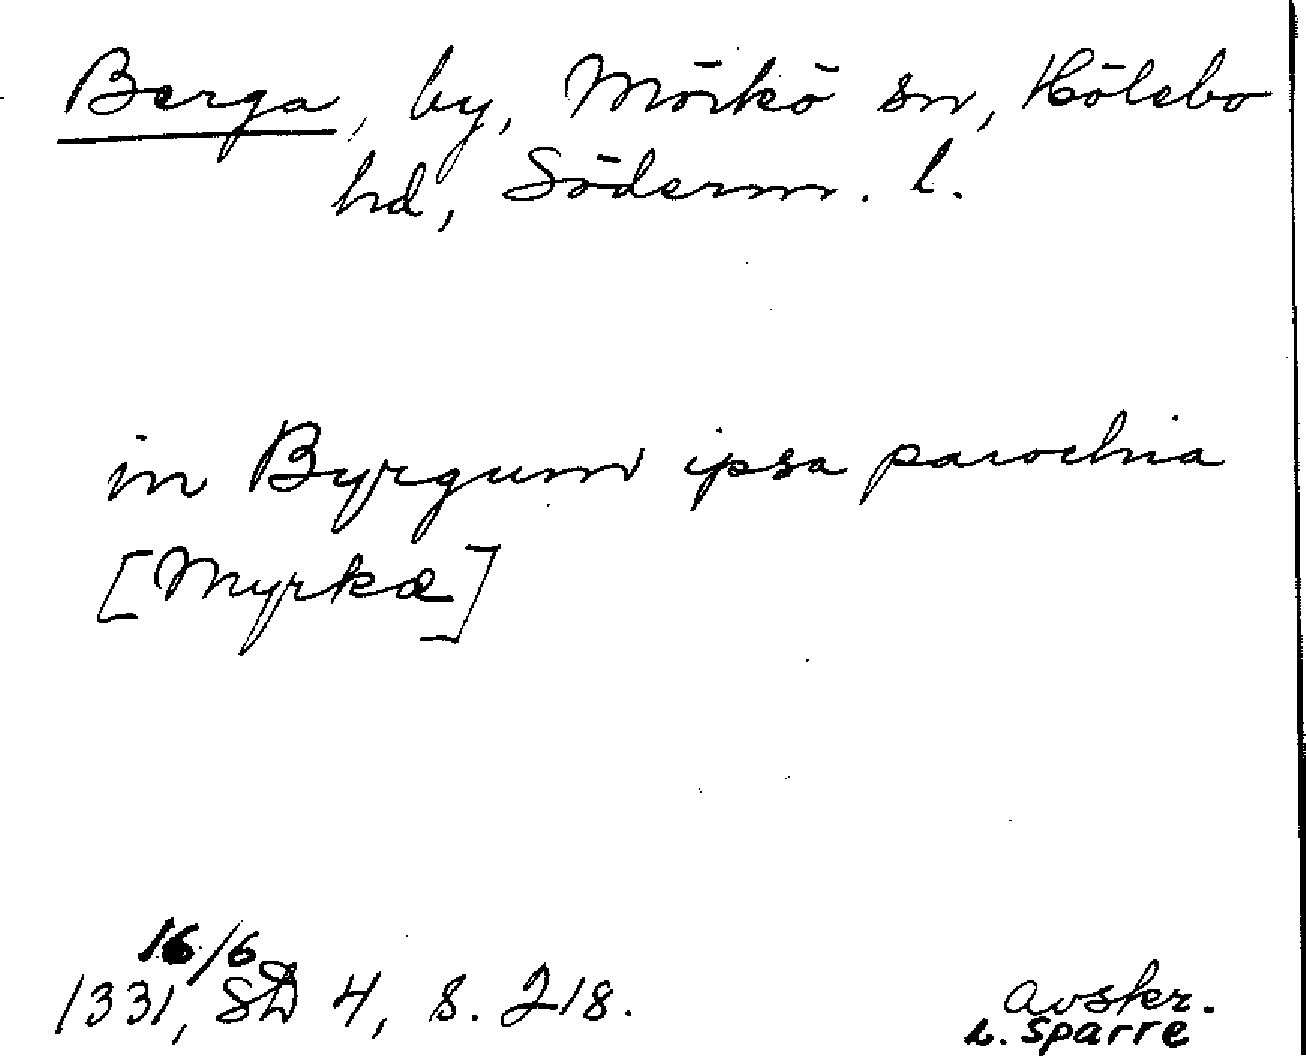 Berga, by, Mörkö sn, Hölebo
hd, Söderm. l.
in Byrgum ipsa parochia
[Myrkæ]
16/6
1331, SD 4, s. 218.
avskr.
L. Sparre